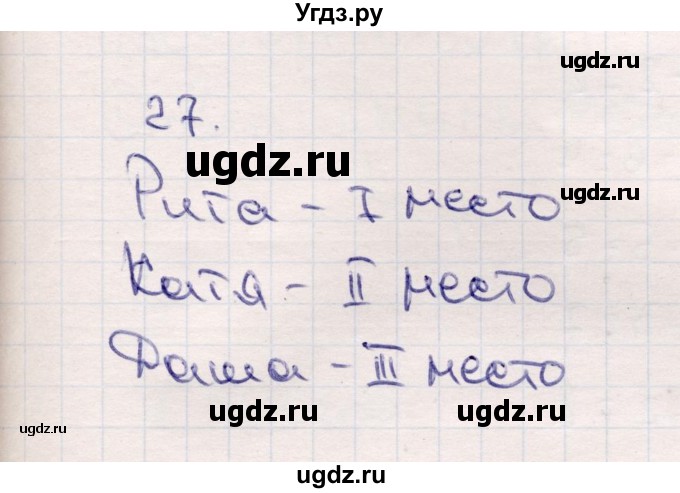 Угдз.ру
ugdz.ru
27.
ugdz.ru
ugdz.ru
Рита - I место
Катя - II место
Даша - III место
ugdz.ru
ugdz.ru
ugdz.ru
ugdz.ru